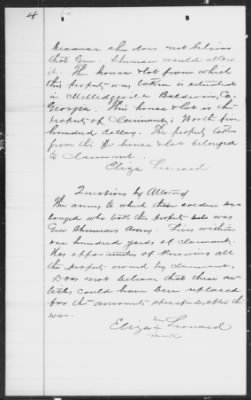 4
because she does not believe
that Gen. Sherman would allow
it. The house & lot from which
this property was taken is situated
in Milledgeville Baldwin, Co,
Georgia. This house & lot is the
property of Claimant; Worth five
hundred dollars. The property taken
from the house & lot belonged
to Claimant.
Eliza Leonard
Questions by Attorney
The army to which these soldiers be-
longed who took this property was
Gen Shermans Army. Lives within
one hundred yards of claimant.
Has opportunities of knowing all
the property owned by claimant.
Does not believe that these ar-
ticles could have been replaced
for the amounts specified after the
war.
Eliza Leonard
mark